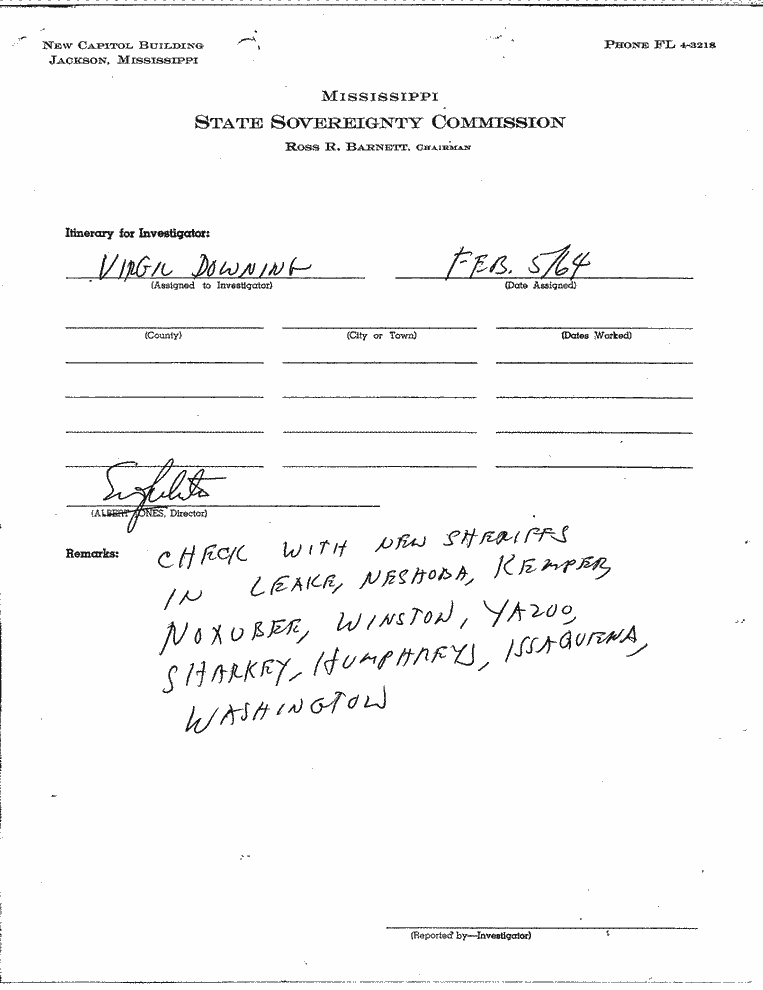 NEW CAPITOL BUILDING
JACKSON, MISSISSIPPI
PHONE FL 4-3218
MISSISSIPPI
STATE SOVEREIGNTY COMMISSION
ROSS R. BARNETT, CHAIRMAN
Itinerary for Investigator:
VIRGIL DOWNING FEB. 5/64
(Assigned to Investigator) (Date Assigned)
(County) (City or Town) (Dates Worked)
(ALBERT JONES, Director)
Remarks: CHECK WITH NEW SHERIFFS
IN LEAKE, NESHOBA, KEMPER,
NOXUBEE, WINSTON, YAZOO,
SHARKEY, HUMPHREYS, ISSAQUENA,
WASHINGTON
(Reported by—Investigator)